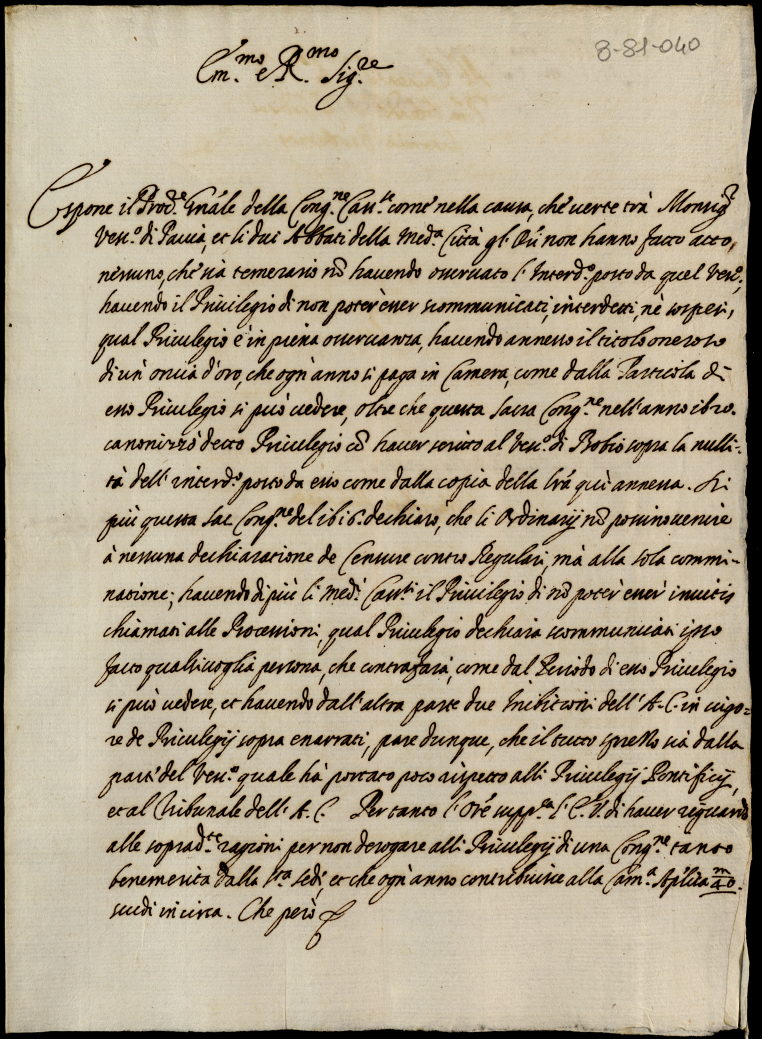 8-81-040
Em.mo e R.mo Sig.re
Espone il Proc.re Gnāle della Cong.ne Cass.se come nella causa, che uerte trà Monsig.r
Vesc.o di Pauia, et li dui Abbati della Med.a Città gl. Oū non hanno facto atto,
nissuno, che sia temerario nō hauendo osseruato l'Interd.o posto da quel Vesc.o,
hauendo il Priuilegio di non poter esser scommunicati, interdetti, nè sospesi,
qual Priuilegio è in piena osseruanza, hauendo annesso il titolo oneroso
di un' oncia d'oro, che ogn' anno si paga in Camera, come dalla Particola di
esso Priuilegio si può uedere, oltre che questa Sacra Cong.ne nell'anno 1620.
canonizzò detto Priuilegio cō hauer scritto al Vesc.o di Bobio sopra la nulli-
tà dell' interd.o posto da esso come dalla copia della lr̄a quì annessa. Di
più questa Sac Cong.ne del 1616. dechiarò, che li Ordinarij nō possino uenire
à nessuna dechiaratione de Censure contro Regulari, mà alla sola commi-
natione; hauendo di più li med.i Cass.si il Priuilegio di nō poter esser inuitis
chiamati alle Processioni, qual Priuilegio dechiara scommunicati ipso
facto qualsiuoglia persona, che contrafarà, come dal Periodo di esso Priuilegio
si può uedere, et hauendo dall'altra parte due Inibitorij dell' A.C. in uigo=
re de Priuilegij sopra enarrati, pare dunque, che il tutto spretto sià dalla
parte del Vesc.o quale hà portato poco rispetto alli Priuilegij Pontificij,
et al Tribunale dell' A. C. Per tanto l' Or̄e supp.ca l' E. V. di hauer riguardo
alle soprad.te ragioni per non derogare alli Priuilegij di una Cong.ne tanto
benemerita dalla S.ta Sede, et che ogn' anno contribuisce alla Cam.a Aplica m/40.
scudi in circa. Che però